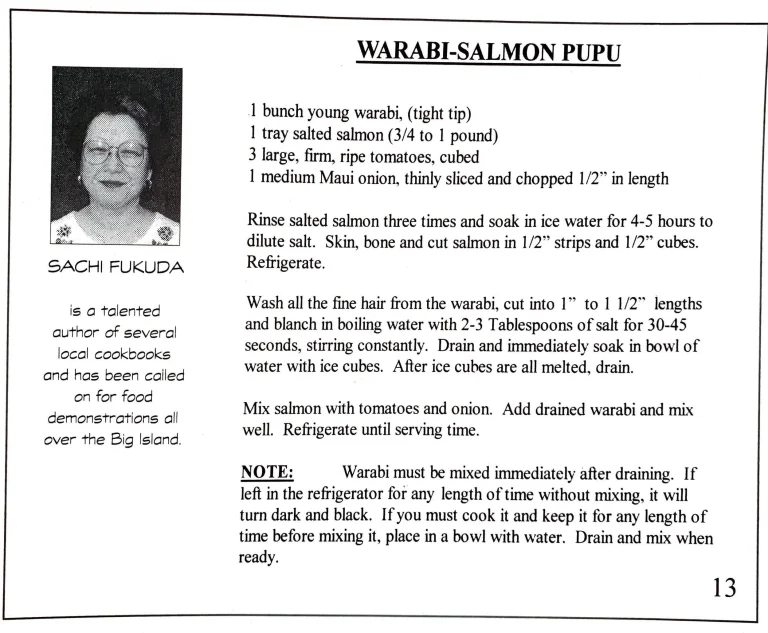 WARABI-SALMON PUPU
1 bunch young warabi, (tight tip)
1 tray salted salmon (3/4 to 1 pound)
3 large, firm, ripe tomatoes, cubed
1 medium Maui onion, thinly sliced and chopped 1/2” in length
Rinse salted salmon three times and soak in ice water for 4-5 hours to
dilute salt. Skin, bone and cut salmon in 1/2” strips and 1/2” cubes.
Refrigerate.
Wash all the fine hair from the warabi, cut into 1” to 1 1/2” lengths
and blanch in boiling water with 2-3 Tablespoons of salt for 30-45
seconds, stirring constantly. Drain and immediately soak in bowl of
water with ice cubes. After ice cubes are all melted, drain.
Mix salmon with tomatoes and onion. Add drained warabi and mix
well. Refrigerate until serving time.
NOTE: Warabi must be mixed immediately after draining. If
left in the refrigerator for any length of time without mixing, it will
turn dark and black. If you must cook it and keep it for any length of
time before mixing it, place in a bowl with water. Drain and mix when
ready.
SACHI FUKUDA
is a talented
author of several
local cookbooks
and has been called
on for food
demonstrations all
over the Big Island.
13